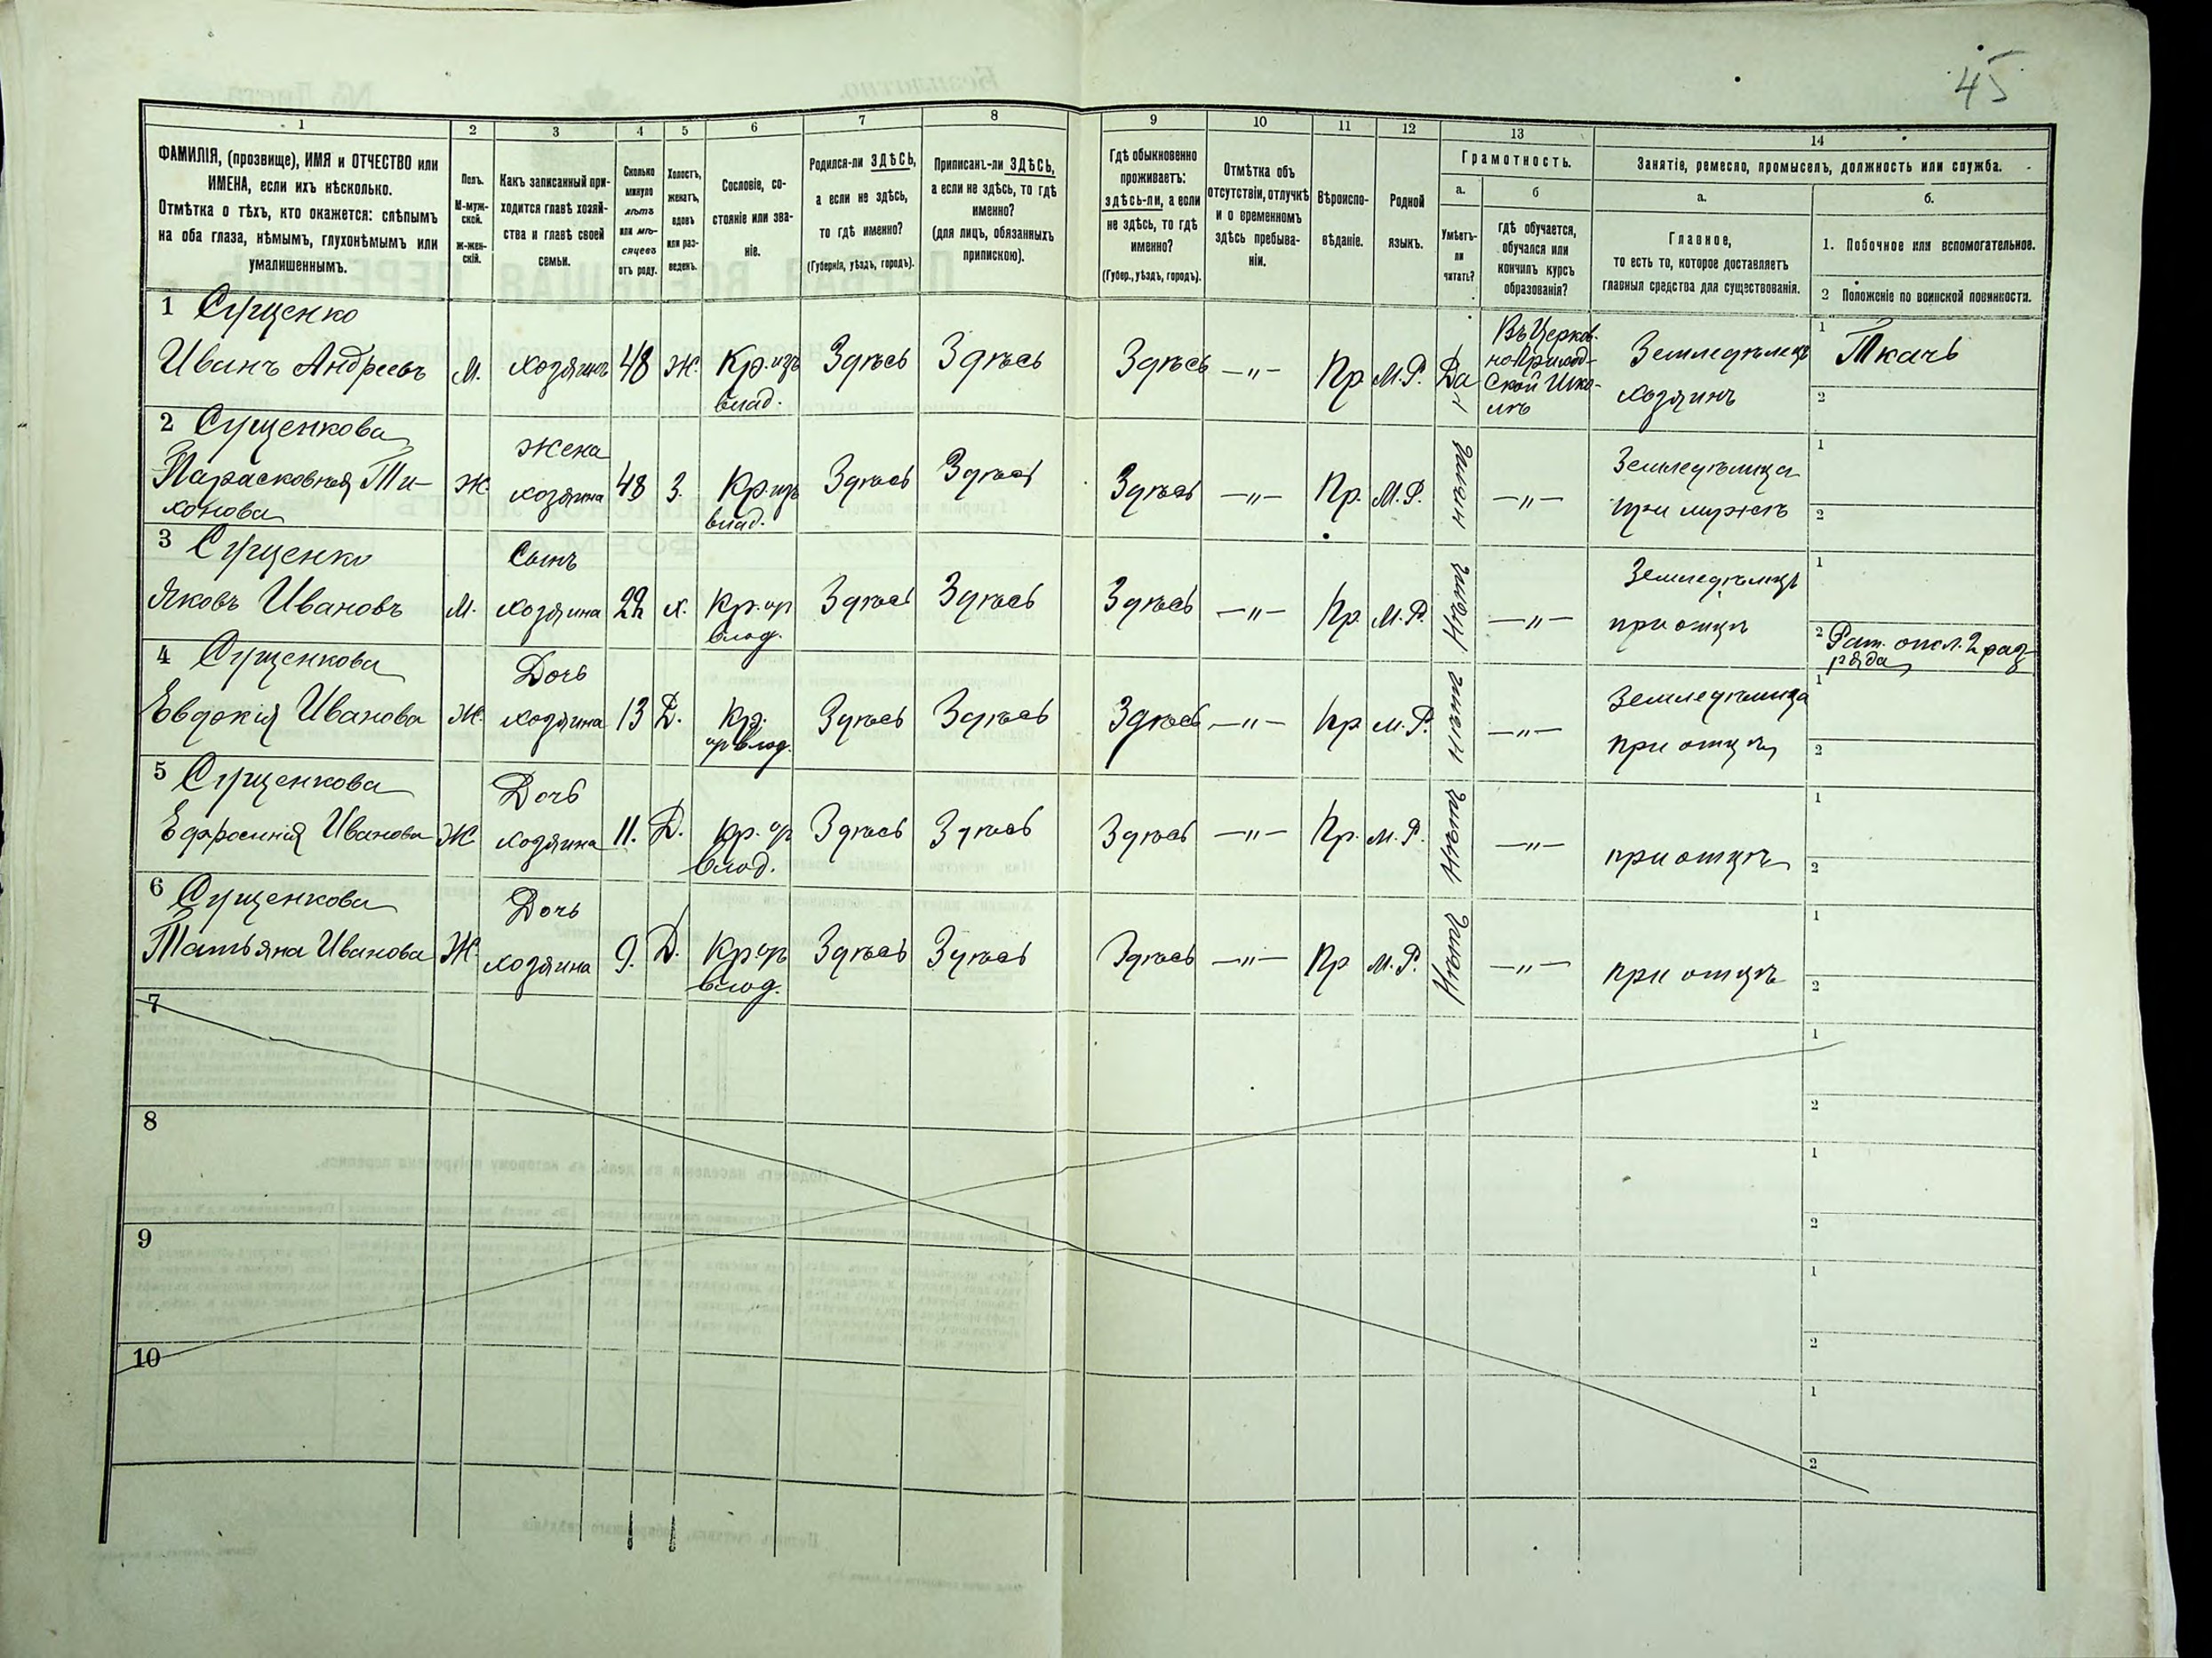 45
1 2 3 4 5 6 7 8 9 10 11 12 13 14
ФАМИЛІЯ, (прозвище), ИМЯ и ОТЧЕСТВО или
ИМЕНА, если ихъ нѣсколько.
Отмѣтка о тѣхъ, кто окажется: слѣпымъ
на оба глаза, нѣмымъ, глухонѣмымъ или
умалишеннымъ.
Полъ.
М-муж-
ской.
Ж-жен-
скій.
Какъ записанный при-
ходится главѣ хозяй-
ства и главѣ своей
семьи.
Сколько
минуло
лѣтъ
или мѣ-
сяцевъ
отъ роду.
Холостъ,
женатъ,
вдовъ
или раз-
веденъ.
Сословіе, со-
стояніе или зва-
ніе.
Родился-ли ЗДѢСЬ,
а если не здѣсь,
то гдѣ именно?
(Губернія, уѣздъ, городъ).
Приписанъ-ли ЗДѢСЬ,
а если не здѣсь, то гдѣ
именно?
(для лицъ, обязанныхъ
припискою).
Гдѣ обыкновенно
проживаетъ:
здѣсь-ли, а если
не здѣсь, то гдѣ
именно?
(Губер., уѣздъ, городъ).
Отмѣтка объ
отсутствіи, отлучкѣ
и о временномъ
здѣсь пребыва-
ніи.
Вѣроиспо-
вѣданіе.
Родной
языкъ.
Грамотность.
а.
Умѣетъ-
ли
читать?
б
гдѣ обучается,
обучался или
кончилъ курсъ
образованія?
Занятіе, ремесло, промыселъ, должность или служба.
а.
Главное,
то есть то, которое доставляетъ
главныя средства для существованія.
б.
1. Побочное или вспомогательное.
2 Положеніе по воинской повинности.
1 Сущенко
Иванъ Андреевъ
М.
хозяинъ
48
Ж.
Кр. изъ
влад.
Здѣсь
Здѣсь
Здѣсь
—"—
Пр
М.Р.
Да
Въ Церков-
но Приход-
ской Шко-
лѣ
Земледѣлецъ
хозяинъ
1 Ткачъ
2
2 Сущенкова
Парасковья Ти-
хонова
Ж
Жена
хозяина
48
З.
Кр. изъ
влад.
Здѣсь
Здѣсь
Здѣсь
—"—
Пр.
М.Р.
Нѣтъ
—"—
Земледѣлица
при мужѣ
1
2
3 Сущенко
Яковъ Ивановъ
М.
Сынъ
хозяина
22
х.
Кр. изъ
влад.
Здѣсь
Здѣсь
Здѣсь
—"—
Пр.
М.Р.
Нѣтъ
—"—
Земледѣлецъ
при отцѣ
1
2 Рат. опол. 2 раз-
ряда
4 Сущенкова
Евдокія Иванова
Ж.
Дочь
хозяина
13
Д.
Кр.
изъ влад.
Здѣсь
Здѣсь
Здѣсь
—"—
Пр
М.Р.
Нѣтъ
—"—
Земледѣлица
при отцѣ
1
2
5 Сущенкова
Ефросинія Иванова
Ж.
Дочь
хозяина
11.
Д.
Кр. изъ
влад.
Здѣсь
Здѣсь
Здѣсь
—"—
Пр.
М.Р.
Нѣтъ
—"—
при отцѣ
1
2
6 Сущенкова
Татьяна Иванова
Ж.
Дочь
хозяина
9.
Д.
Кр. изъ
влад.
Здѣсь
Здѣсь
Здѣсь
—"—
Пр
М.Р.
Нѣтъ
—"—
при отцѣ
1
2
7
1
2
8
1
2
9
1
2
10
1
2